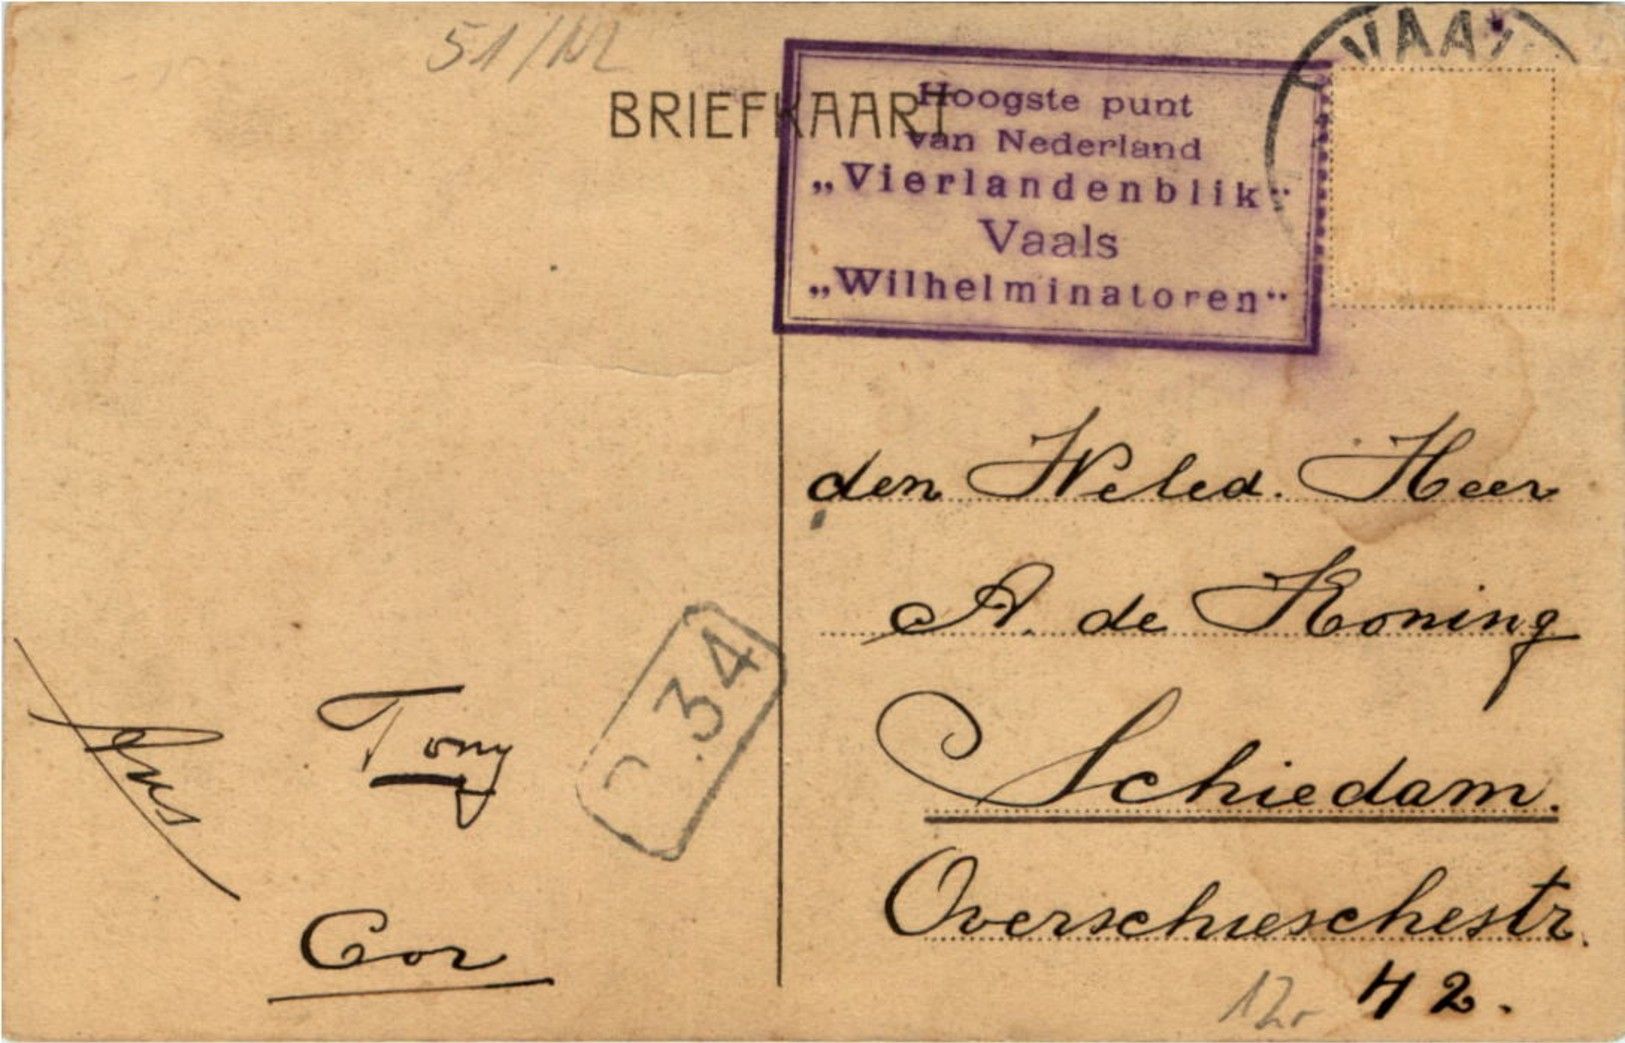 51/
BRIEFKAART
VAA
Hoogste punt
van Nederland
„Vierlandenblik“
Vaals
„Wilhelminatoren“
den Weled. Heer
A. de Koning
Schiedam.
Overschieschestr.
42.
12
.34
Tony
Cor